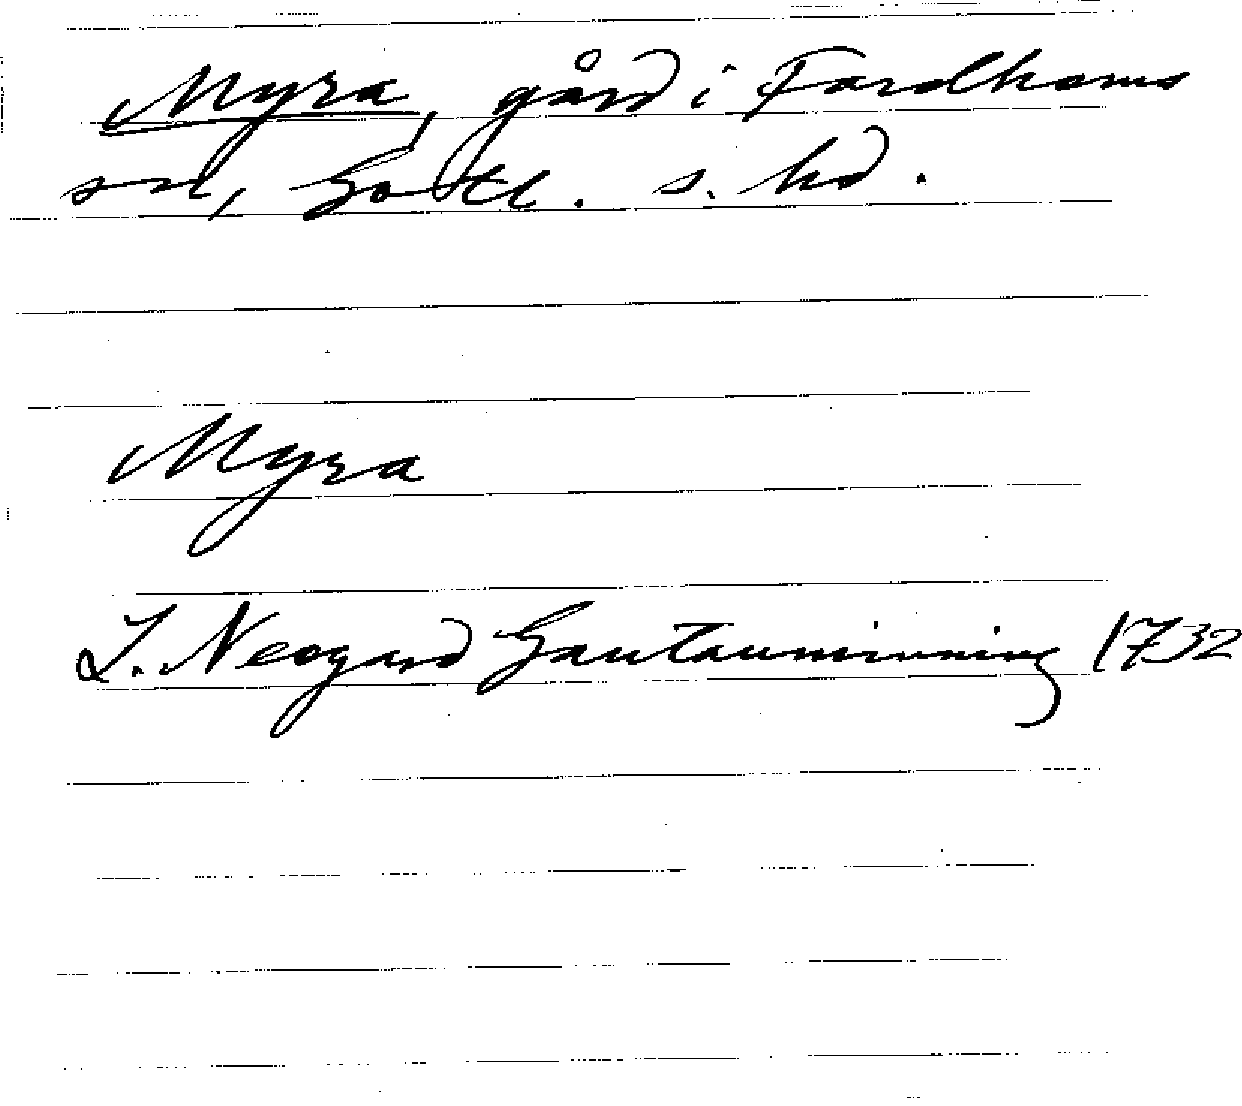 Myra, gård i Fardhems
sn, Gotl. s. hd.
Myra
L. Neogard Gautauminning 1732